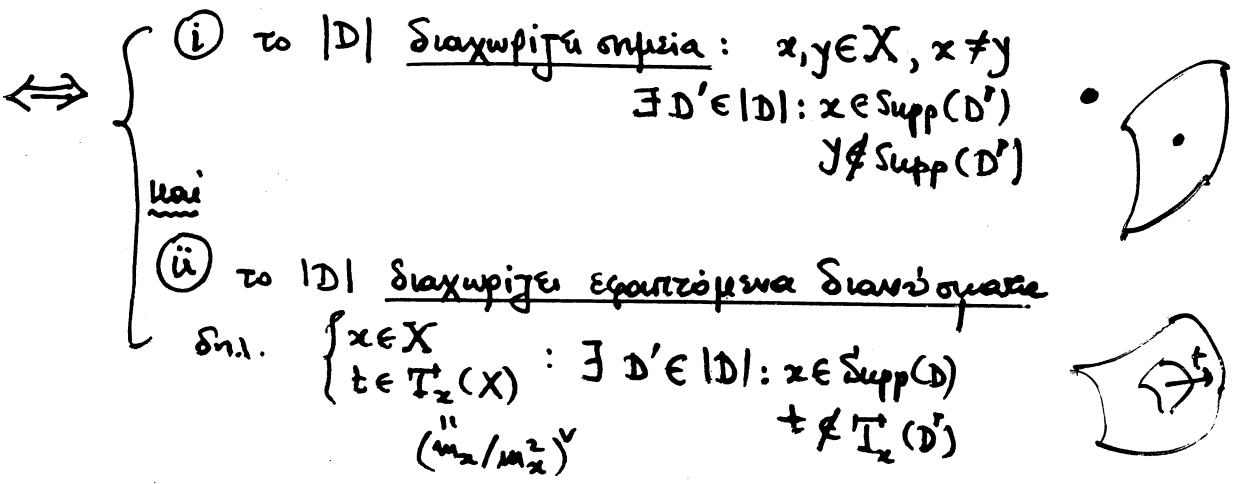 ⟺ { (i) το |D| διαχωρίζει σημεία : x, y ∈ X, x ≠ y
∃ D' ∈ |D| : x ∈ Supp(D')
y ∉ Supp(D')
και
(ii) το |D| διαχωρίζει εφαπτόμενα διανύσματα
δηλ. { x ∈ X
t ∈ T_x(X) : ∃ D' ∈ |D| : x ∈ Supp(D)
t ∉ T_x(D')
= (m_x/m_x^2)^∨
t